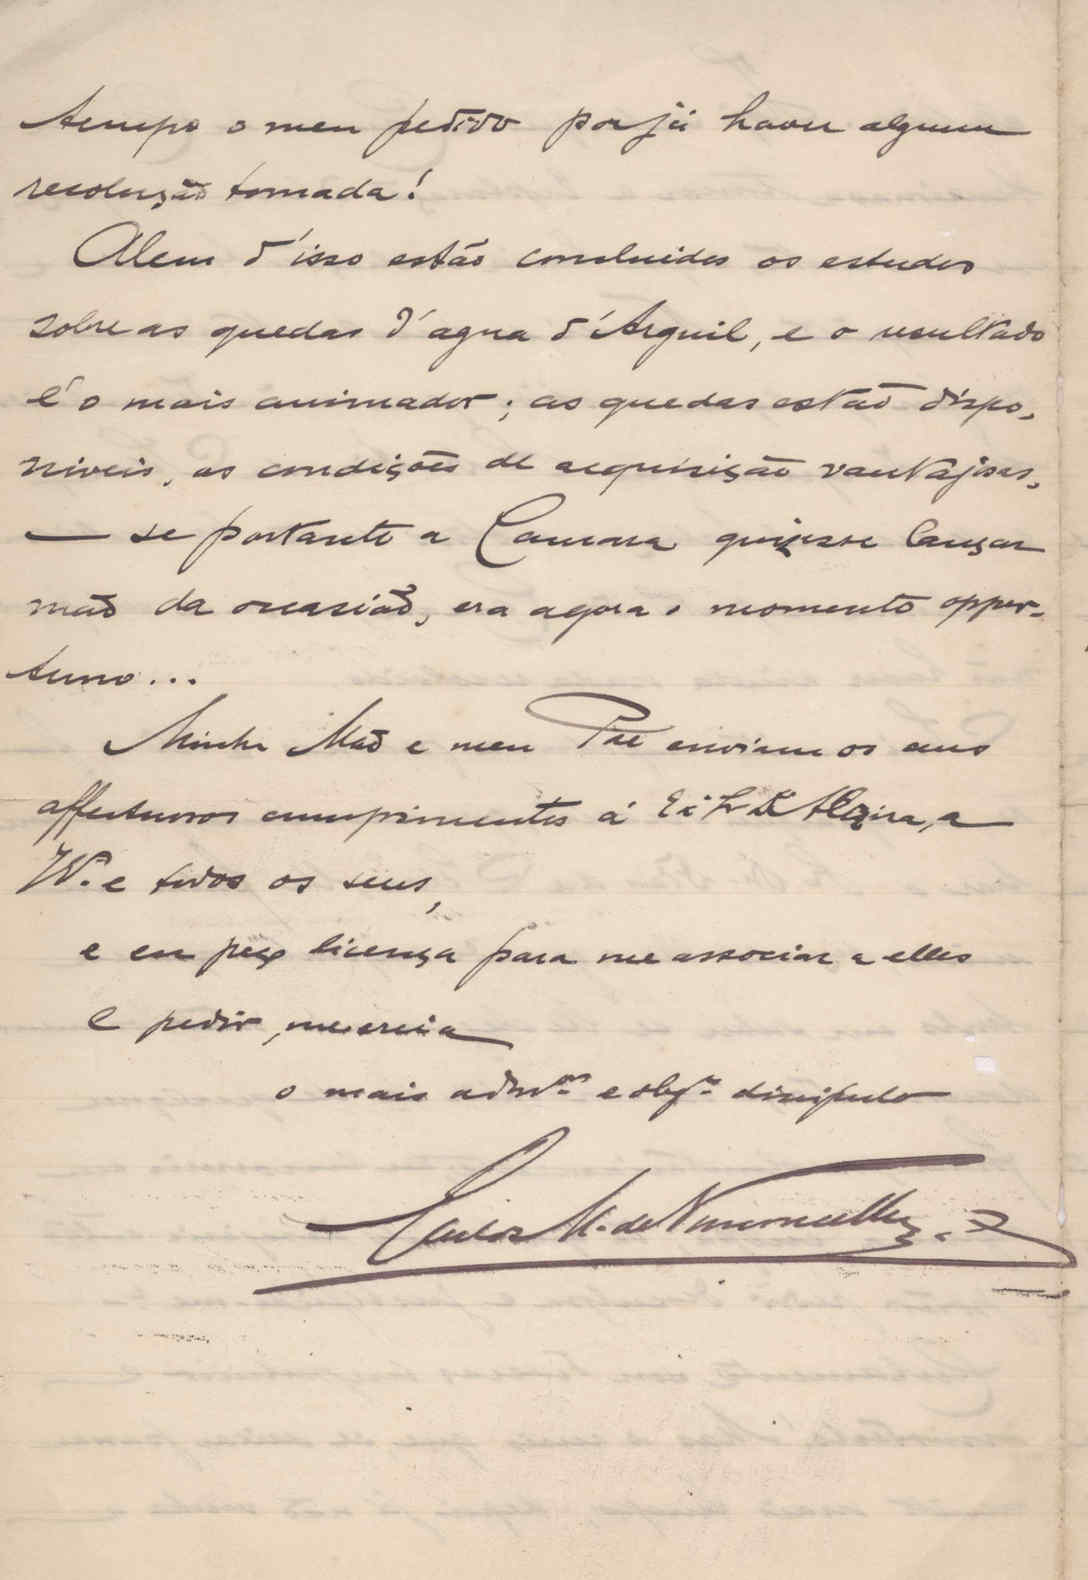 tempo o meu pedido por já haver alguma
resolução tomada!
Alem d'isso estão concluidos os estudos
sobre as quedas d'agua d'Arguil, e o resultado
é o mais animador; as quedas estão dispo-
niveis, as condições de acquisição vantajosas,
— se portanto a Camara quizesse lançar
mão da occasião, era agora o momento oppor-
tuno...
Minha Mãe e meu Pae enviam os seus
affectuosos cumprimentos á
V. e todos os seus,
e eu peço licença para me associar a elles
e pedir, me creia
o mais admor. e obgo. discipulo
Carlos M. de Vasconcellos